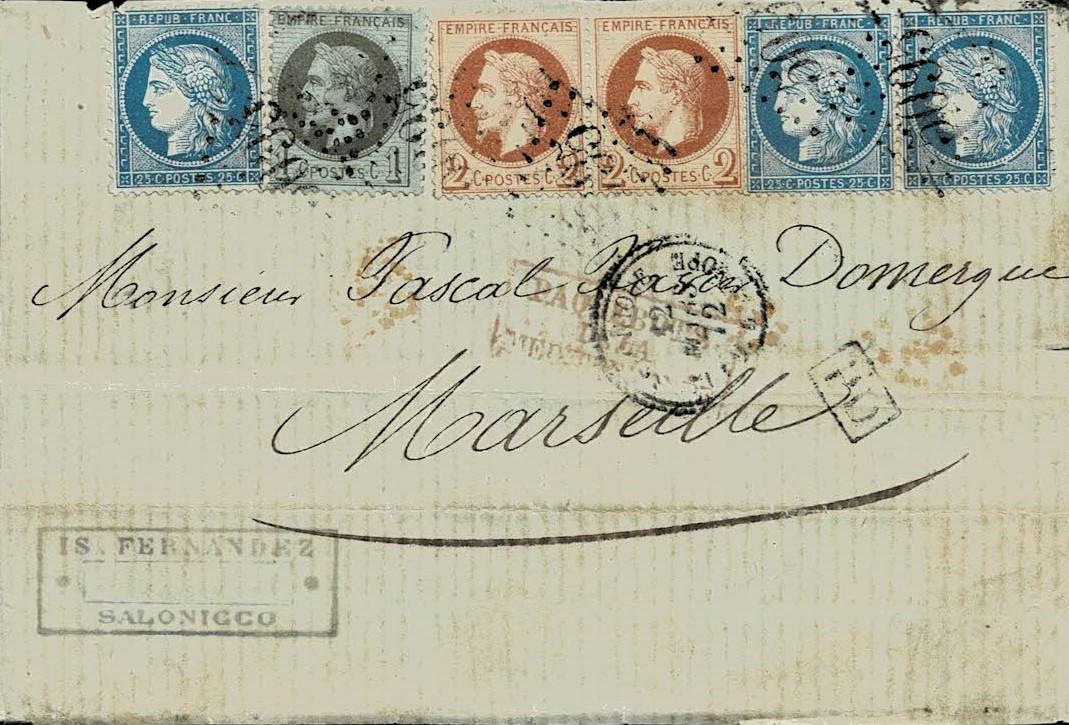 REPUB·FRANC·
25·C·POSTES·25·C·
EMPIRE·FRANÇAIS
POSTES·C· 1
EMPIRE·FRANÇAIS
2 C·POSTES·C·
EMPIRE·FRANÇAIS
2 C·POSTES·C· 2
REPUB·FRANC·
25·C·POSTES·25·C·
REPUB·FRANC·
25·C·POSTES·25·C·
Monsieur Pascal Domergue
Marseille
PD
IS. FERNANDEZ
SALONICCO